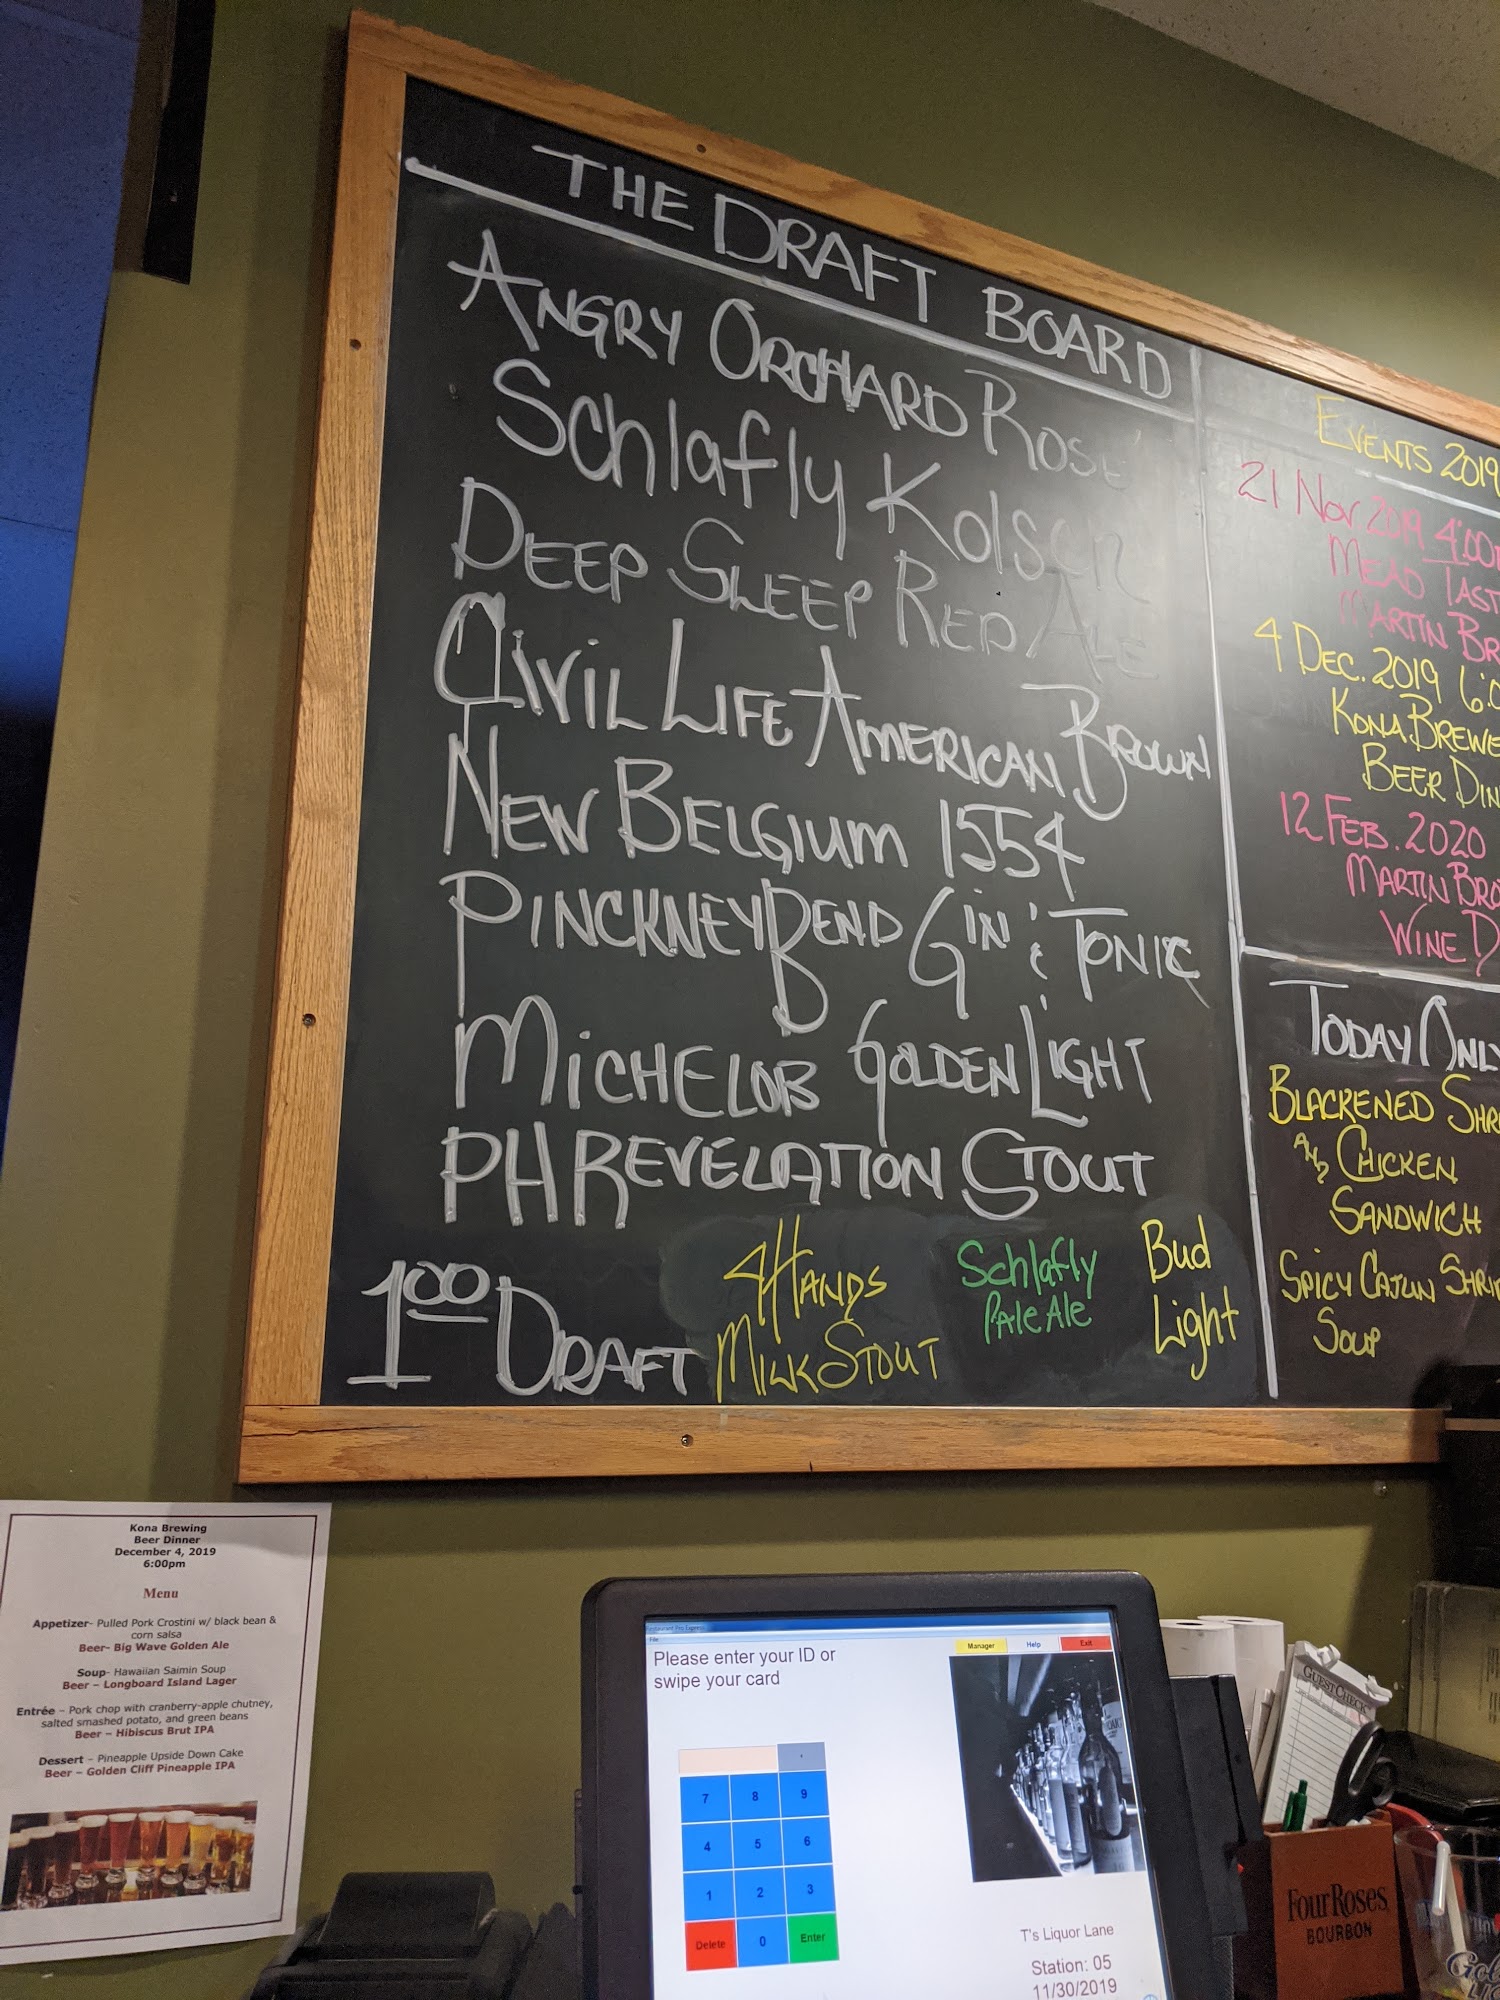 THE DRAFT BOARD
ANGRY ORCHARD ROSÉ
Schlafly Kolsch
DEEP SLEEP RED ALE
CIVIL LIFE AMERICAN BROWN
NEW BELGIUM 1554
PINCKNEY BEND GIN & TONIC
MICHELOB GOLDEN LIGHT
PH REVELATION STOUT
1⁰⁰ DRAFT
4 HANDS
MILK STOUT
Schlafly
Pale Ale
Bud
Light
EVENTS 2019
21 NOV 2019 4:00
MEAD TAST
MARTIN BR
4 DEC. 2019 6:0
KONA BREWE
BEER DIN
12 FEB. 2020
MARTIN BRO
WINE D
TODAY ONLY
BLACKENED SHR
AND CHICKEN
SANDWICH
SPICY CAJUN SHRI
SOUP
Kona Brewing
Beer Dinner
December 4, 2019
6:00pm
Menu
Appetizer- Pulled Pork Crostini w/ black bean &
corn salsa
Beer- Big Wave Golden Ale
Soup- Hawaiian Saimin Soup
Beer – Longboard Island Lager
Entrée – Pork chop with cranberry-apple chutney,
salted smashed potato, and green beans
Beer – Hibiscus Brut IPA
Dessert – Pineapple Upside Down Cake
Beer – Golden Cliff Pineapple IPA
Restaurant Pro Express
File
Manager Help Exit
Please enter your ID or
swipe your card
7 8 9
4 5 6
1 2 3
Delete 0 Enter
T's Liquor Lane
Station: 05
11/30/2019
GUEST CHECK
Four Roses
BOURBON